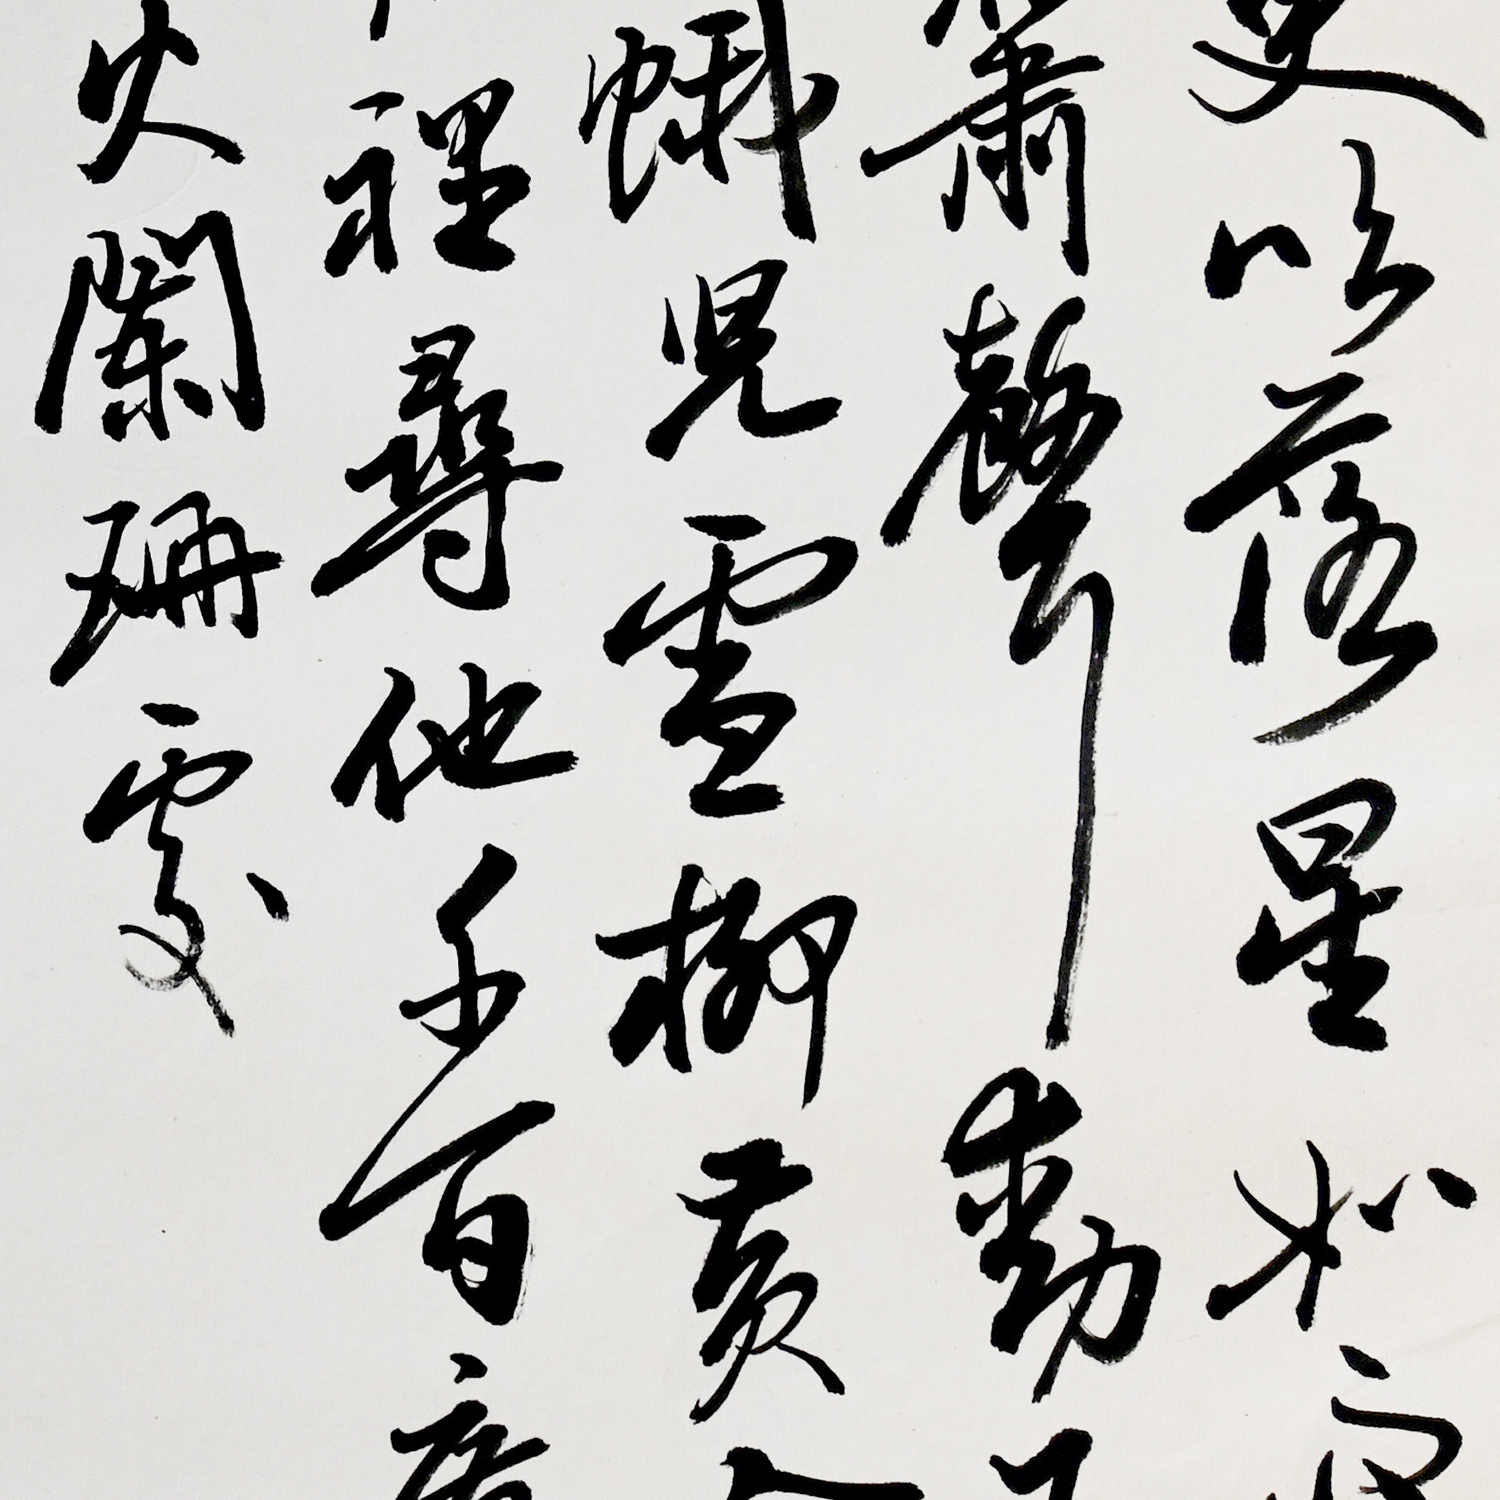 更吹落星如
簫聲動
蛾兒雪柳黃
裡尋他千百度
火闌珊處